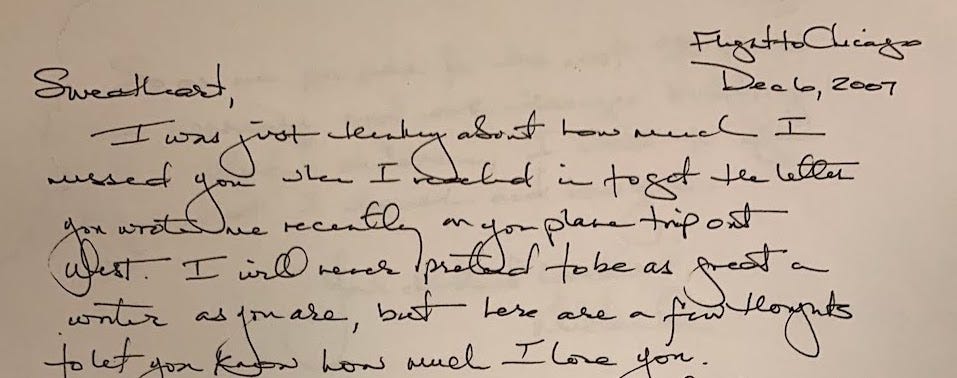 Flight to Chicago
Dec 6, 2007
Sweetheart,
I was just thinking about how much I
missed you when I reached in to get the letter
you wrote me recently on you plane trip out
West. I will never pretend to be as great a
writer as you are, but here are a few thoughts
to let you know how much I love you.